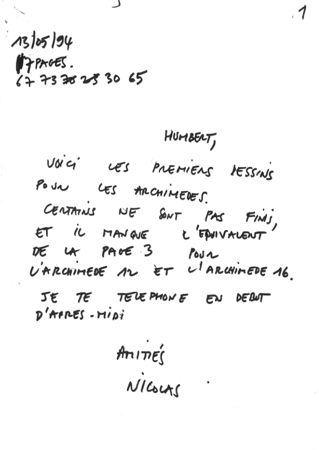 1
13/05/94
7 PAGES.
67 73 78 23 30 65
HUMBERT,
VOICI LES PREMIERS DESSINS
POUR LES ARCHIMEDES.
CERTAINS NE SONT PAS FINIS,
ET IL MANQUE L'EQUIVALENT
DE LA PAGE 3 POUR
L'ARCHIMEDE 12 ET L'ARCHIMEDE 16.
JE TE TELEPHONE EN DEBUT
D'APRES-MIDI
AMITIÉS
NICOLAS